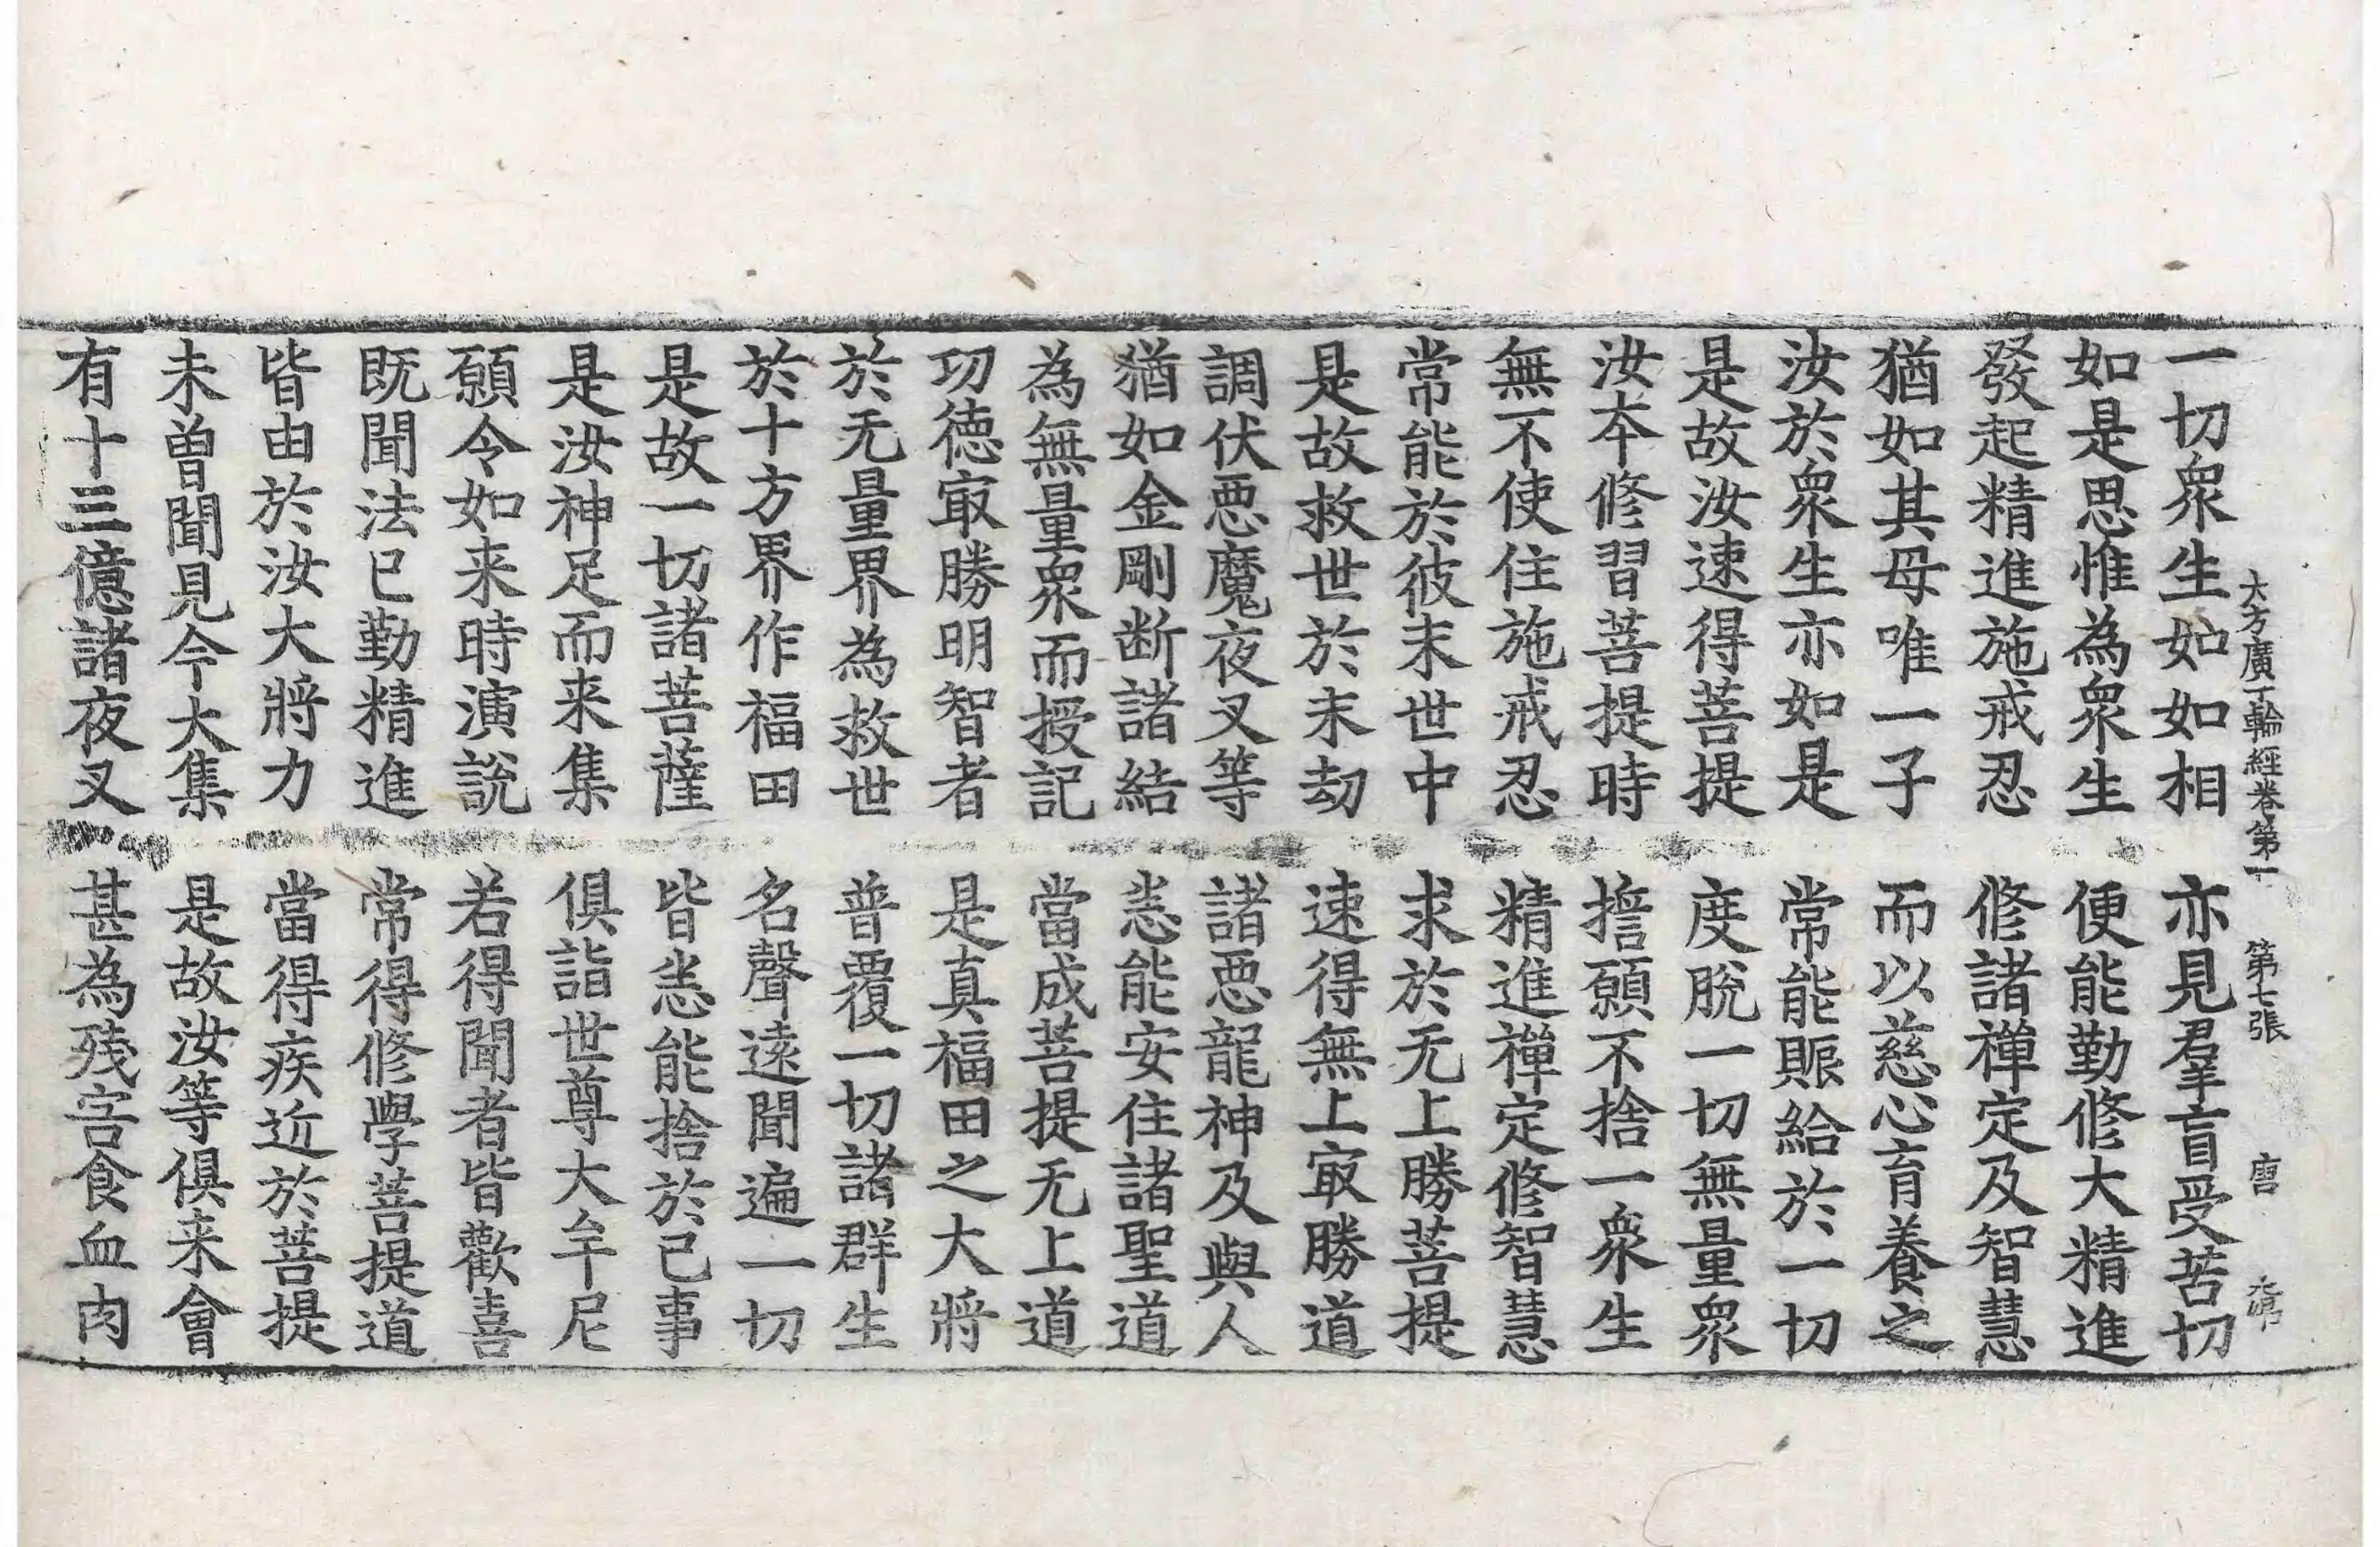 大方廣十輪經卷第一　第七張　唐
一切衆生如如相　亦見羣盲受苦切
如是思惟為衆生　便能勤修大精進
發起精進施戒忍　修諸禪定及智慧
猶如其母唯一子　而以慈心育養之
汝於衆生亦如是　常能賑給於一切
是故汝速得菩提　度脫一切無量衆
汝夲修習菩提時　擔願不捨一衆生
無不使住施戒忍　精進禪定修智慧
常能於彼末世中　求於无上勝菩提
是故救世於末劫　速得無上㝡勝道
調伏惡魔夜叉等　諸惡龍神及與人
猶如金剛断諸結　悉能安住諸聖道
為無量衆而授記　當成菩提无上道
功德㝡勝明智者　是真福田之大將
於无量界為救世　普覆一切諸群生
於十方界作福田　名聲遠聞遍一切
是故一切諸菩薩　皆悉能捨於已事
是汝神足而来集　俱詣世尊大牟尼
願令如来時演說　若得聞者皆歡喜
既聞法已勤精進　常得修學菩提道
皆由於汝大將力　當得疾近於菩提
未曽聞見今大集　是故汝等俱来會
有十三億諸夜叉　甚為殘害食血肉